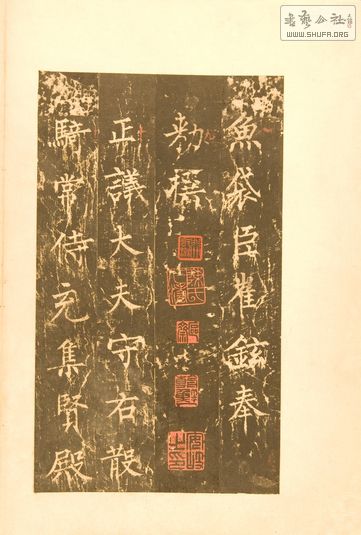 魚袋臣崔鉉奉
勅撰
正議大夫守右散
騎常侍充集賢殿
WWW.SHUFA.ORG